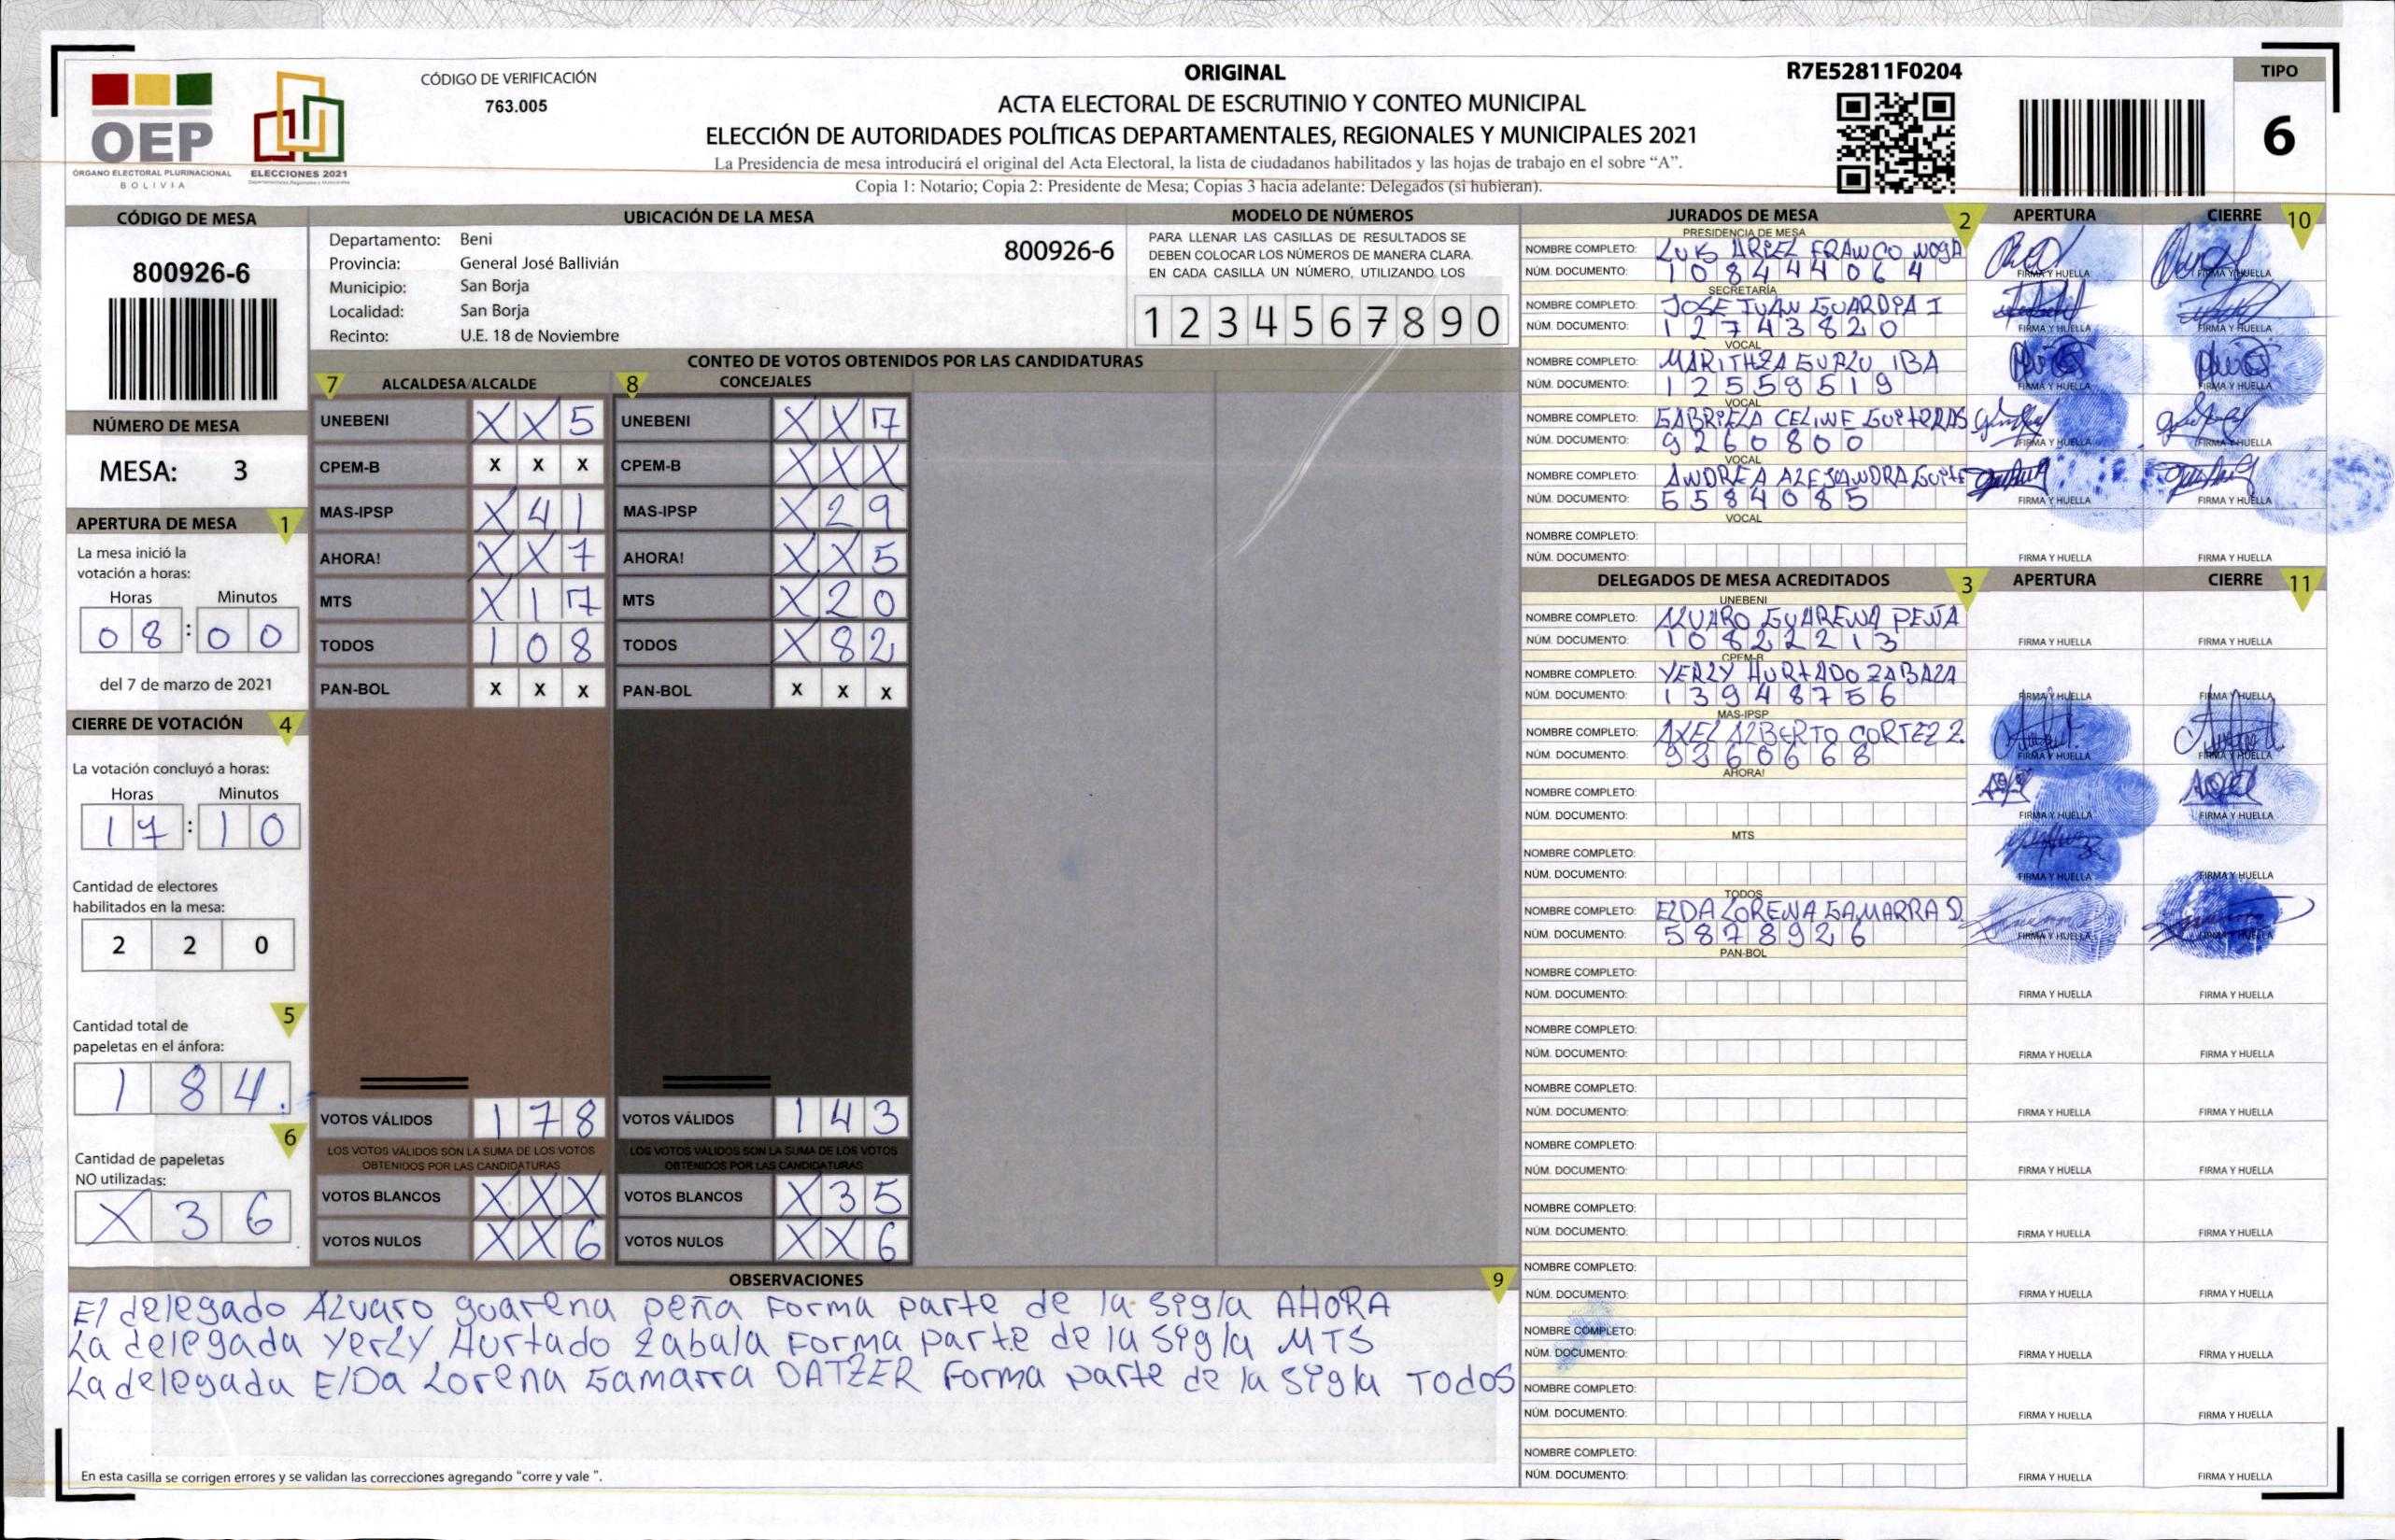 ORIGINAL
R7E52811F0204
TIPO
6
OEP
ÓRGANO ELECTORAL PLURINACIONAL
BOLIVIA
ELECCIONES 2021
CÓDIGO DE VERIFICACIÓN
763.005
ACTA ELECTORAL DE ESCRUTINIO Y CONTEO MUNICIPAL
ELECCIÓN DE AUTORIDADES POLÍTICAS DEPARTAMENTALES, REGIONALES Y MUNICIPALES 2021
La Presidencia de mesa introducirá el original del Acta Electoral, la lista de ciudadanos habilitados y las hojas de trabajo en el sobre “A”.
Copia 1: Notario; Copia 2: Presidente de Mesa; Copias 3 hacia adelante: Delegados (si hubieran).
CÓDIGO DE MESA
800926-6
NÚMERO DE MESA
MESA: 3
APERTURA DE MESA 1
La mesa inició la
votación a horas:
Horas Minutos
08:00
del 7 de marzo de 2021
CIERRE DE VOTACIÓN 4
La votación concluyó a horas:
Horas Minutos
17:10
Cantidad de electores
habilitados en la mesa:
2 2 0
5
Cantidad total de
papeletas en el ánfora:
1 8 4.
6
Cantidad de papeletas
NO utilizadas:
X 3 6
UBICACIÓN DE LA MESA
Departamento: Beni
Provincia: General José Ballivián
Municipio: San Borja
Localidad: San Borja
Recinto: U.E. 18 de Noviembre
800926-6
MODELO DE NÚMEROS
PARA LLENAR LAS CASILLAS DE RESULTADOS SE
DEBEN COLOCAR LOS NÚMEROS DE MANERA CLARA.
EN CADA CASILLA UN NÚMERO, UTILIZANDO LOS
1 2 3 4 5 6 7 8 9 0
CONTEO DE VOTOS OBTENIDOS POR LAS CANDIDATURAS
7 ALCALDESA/ALCALDE 8 CONCEJALES
UNEBENI X X 5 UNEBENI X X 7
CPEM-B X X X CPEM-B X X X
MAS-IPSP X 4 1 MAS-IPSP X 2 9
AHORA! X X 7 AHORA! X X 5
MTS X 1 7 MTS X 2 0
TODOS 1 0 8 TODOS X 8 2
PAN-BOL X X X PAN-BOL X X X
VOTOS VÁLIDOS 1 7 8 VOTOS VÁLIDOS 1 4 3
LOS VOTOS VÁLIDOS SON LA SUMA DE LOS VOTOS LOS VOTOS VÁLIDOS SON LA SUMA DE LOS VOTOS
OBTENIDOS POR LAS CANDIDATURAS OBTENIDOS POR LAS CANDIDATURAS
VOTOS BLANCOS X X X VOTOS BLANCOS X 3 5
VOTOS NULOS X X 6 VOTOS NULOS X X 6
OBSERVACIONES 9
El delegado Alvaro guarena peña Forma parte de la sigla AHORA
La delegada Yerly Hurtado Zabala Forma parte de la sigla MTS
La delegada Elda Lorena Gamarra DATZER Forma parte de la sigla TODOS
En esta casilla se corrigen errores y se validan las correcciones agregando "corre y vale ".
JURADOS DE MESA 2 APERTURA CIERRE 10
PRESIDENCIA DE MESA
NOMBRE COMPLETO: LUIS ARIEL FRANCO NOGA
NÚM. DOCUMENTO: 108444064 FIRMA Y HUELLA FIRMA Y HUELLA
SECRETARÍA
NOMBRE COMPLETO: JOSE IVAN GUARDIA I
NÚM. DOCUMENTO: 12743820 FIRMA Y HUELLA FIRMA Y HUELLA
VOCAL
NOMBRE COMPLETO: IBA
NÚM. DOCUMENTO: 12559519 FIRMA Y HUELLA FIRMA Y HUELLA
VOCAL
NOMBRE COMPLETO: GABRIELA CELINE
NÚM. DOCUMENTO: 9260800 FIRMA Y HUELLA FIRMA Y HUELLA
VOCAL
NOMBRE COMPLETO: ANDREA ALEJANDRA
NÚM. DOCUMENTO: 5584085 FIRMA Y HUELLA FIRMA Y HUELLA
VOCAL
NOMBRE COMPLETO:
NÚM. DOCUMENTO: FIRMA Y HUELLA FIRMA Y HUELLA
DELEGADOS DE MESA ACREDITADOS 3 APERTURA CIERRE 11
UNEBENI
NOMBRE COMPLETO: ALVARO GUARENA PEÑA
NÚM. DOCUMENTO: 10822213 FIRMA Y HUELLA FIRMA Y HUELLA
CPEM-B
NOMBRE COMPLETO: YERLY HURTADO ZABALA
NÚM. DOCUMENTO: 13948756 FIRMA Y HUELLA FIRMA Y HUELLA
MAS-IPSP
NOMBRE COMPLETO: AXEL ALBERTO CORTEZ Z.
NÚM. DOCUMENTO: 9360668 FIRMA Y HUELLA FIRMA Y HUELLA
AHORA!
NOMBRE COMPLETO:
NÚM. DOCUMENTO: FIRMA Y HUELLA FIRMA Y HUELLA
MTS
NOMBRE COMPLETO:
NÚM. DOCUMENTO: FIRMA Y HUELLA FIRMA Y HUELLA
TODOS
NOMBRE COMPLETO: ELDA LORENA GAMARRA D.
NÚM. DOCUMENTO: 5878926 FIRMA Y HUELLA FIRMA Y HUELLA
PAN-BOL
NOMBRE COMPLETO:
NÚM. DOCUMENTO: FIRMA Y HUELLA FIRMA Y HUELLA
NOMBRE COMPLETO:
NÚM. DOCUMENTO: FIRMA Y HUELLA FIRMA Y HUELLA
NOMBRE COMPLETO:
NÚM. DOCUMENTO: FIRMA Y HUELLA FIRMA Y HUELLA
NOMBRE COMPLETO:
NÚM. DOCUMENTO: FIRMA Y HUELLA FIRMA Y HUELLA
NOMBRE COMPLETO:
NÚM. DOCUMENTO: FIRMA Y HUELLA FIRMA Y HUELLA
NOMBRE COMPLETO:
NÚM. DOCUMENTO: FIRMA Y HUELLA FIRMA Y HUELLA
NOMBRE COMPLETO:
NÚM. DOCUMENTO: FIRMA Y HUELLA FIRMA Y HUELLA
NOMBRE COMPLETO:
NÚM. DOCUMENTO: FIRMA Y HUELLA FIRMA Y HUELLA
NOMBRE COMPLETO:
NÚM. DOCUMENTO: FIRMA Y HUELLA FIRMA Y HUELLA